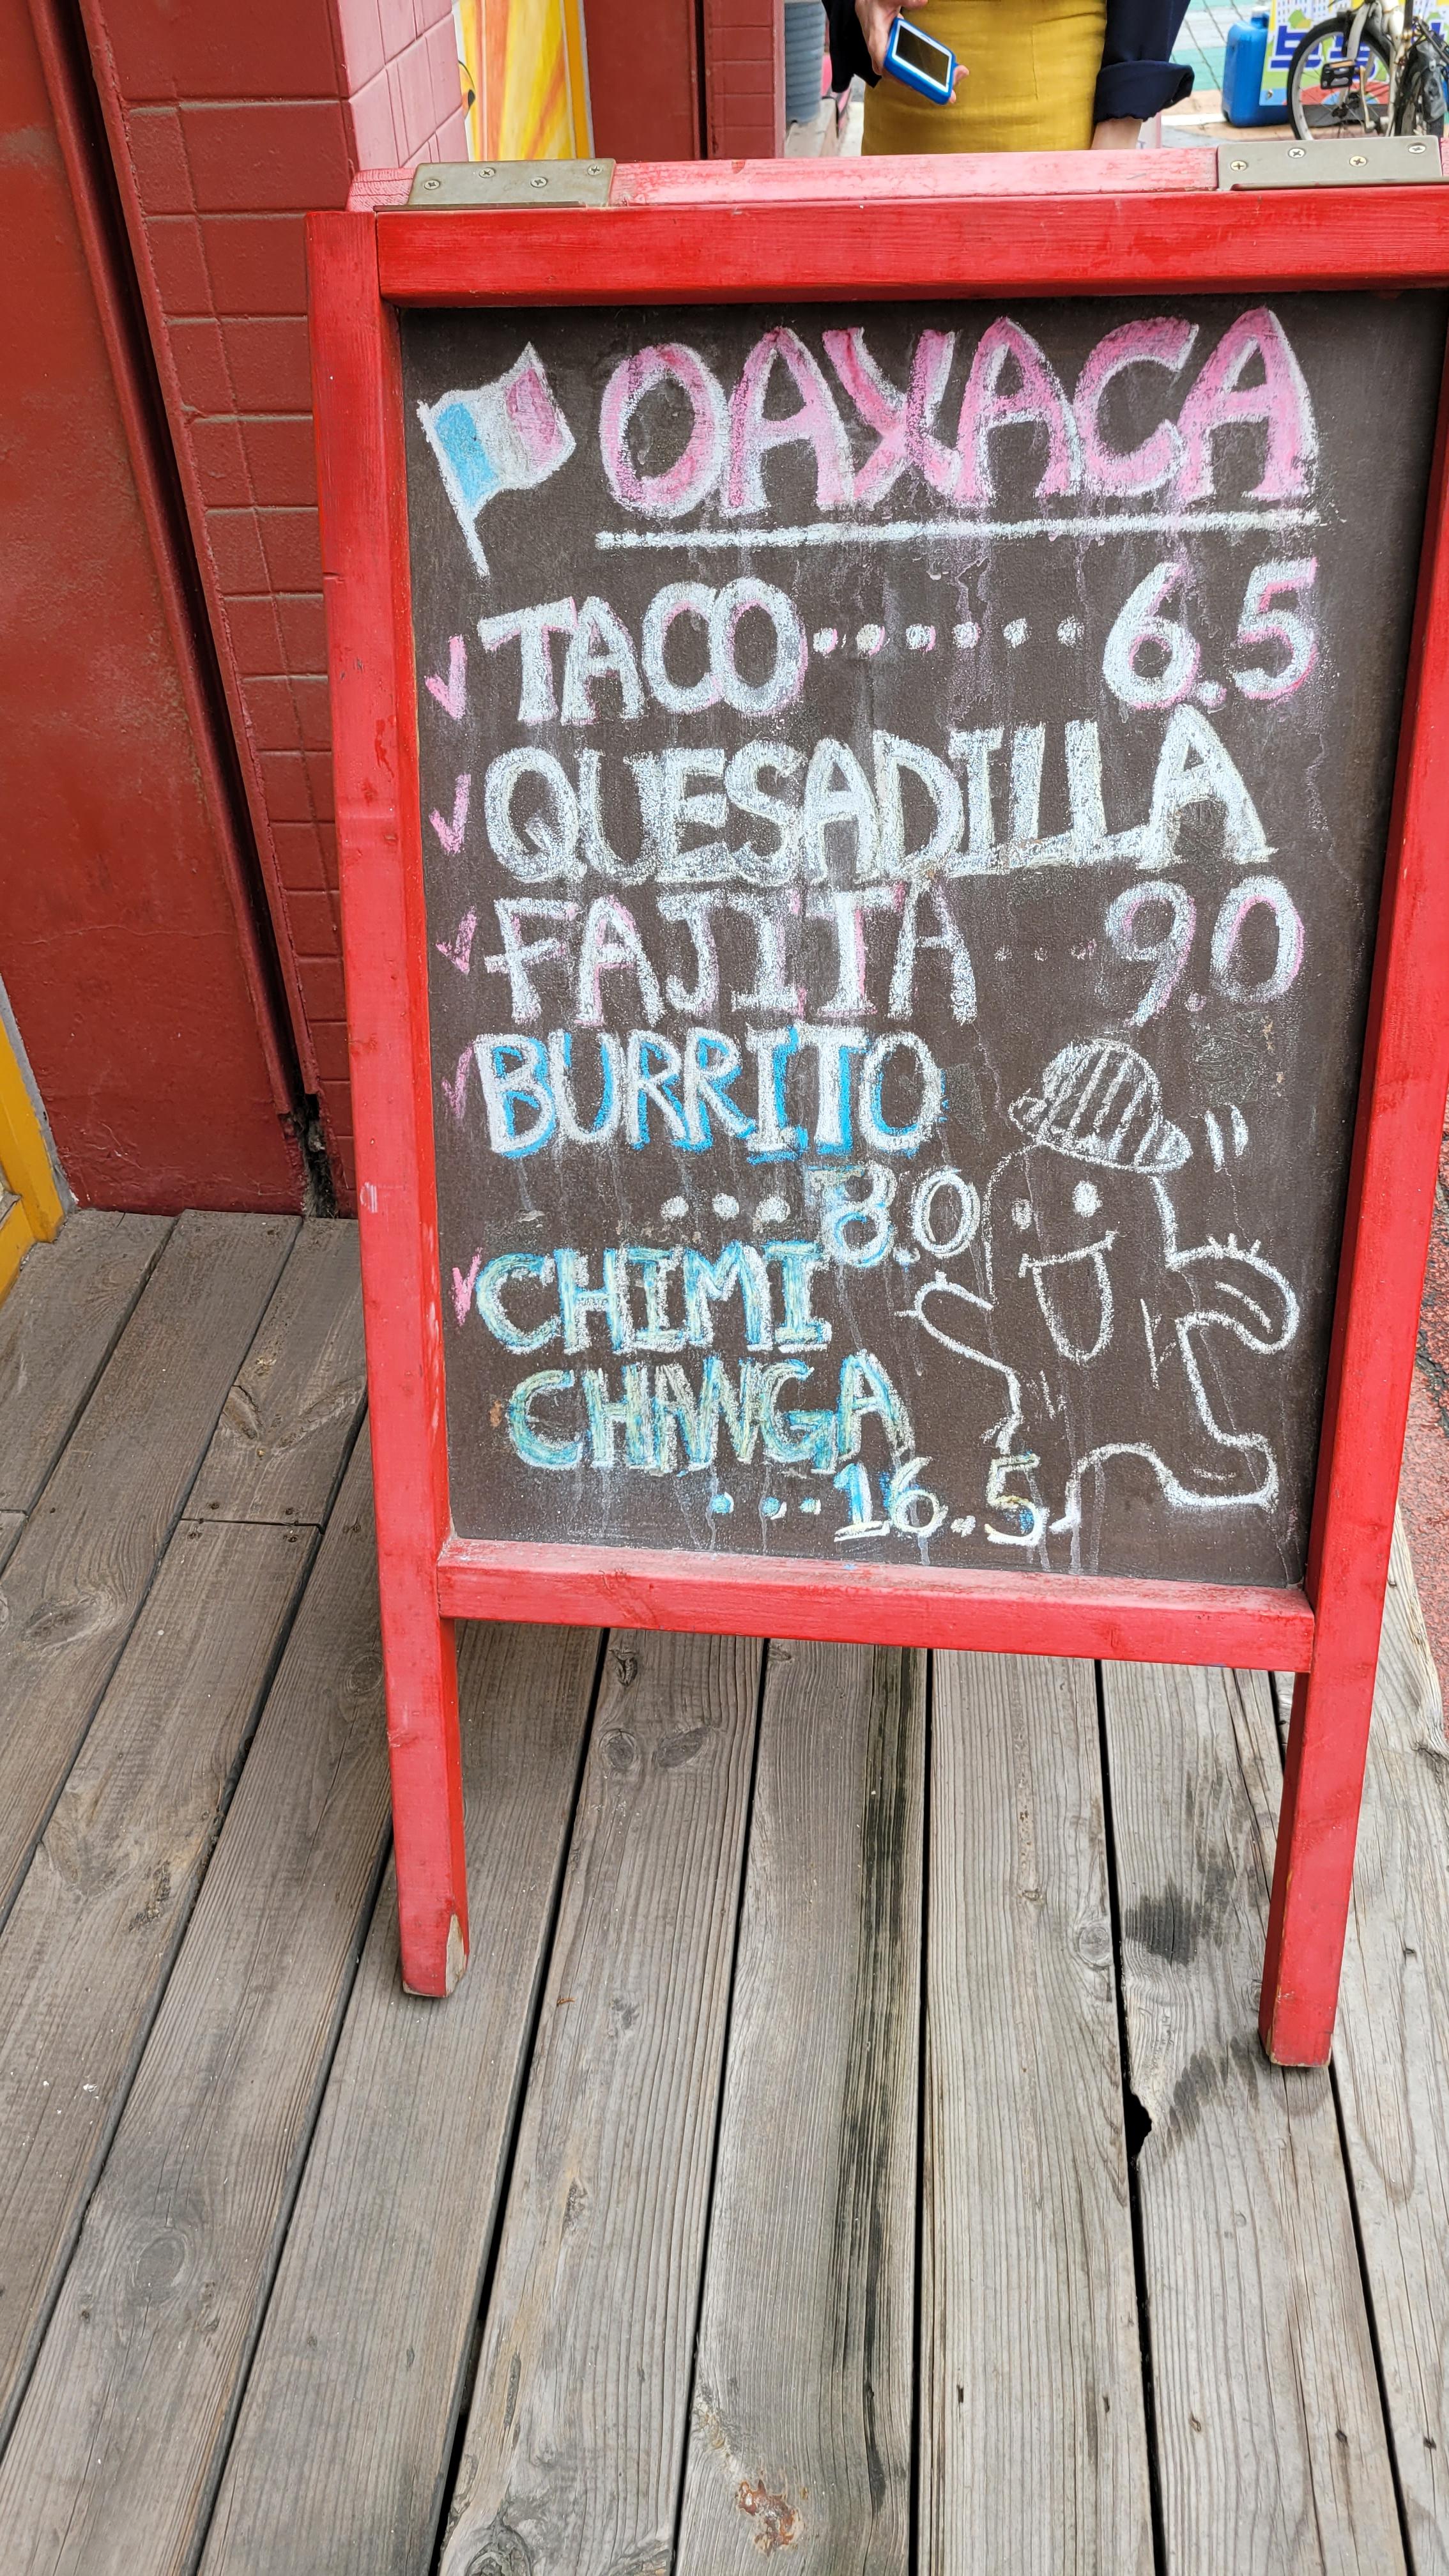 OAXACA
TACO ...... 6.5
QUESADILLA
FAJITA ... 9.0
BURRITO
... 8.0
CHIMI
CHANGA
... 16.5